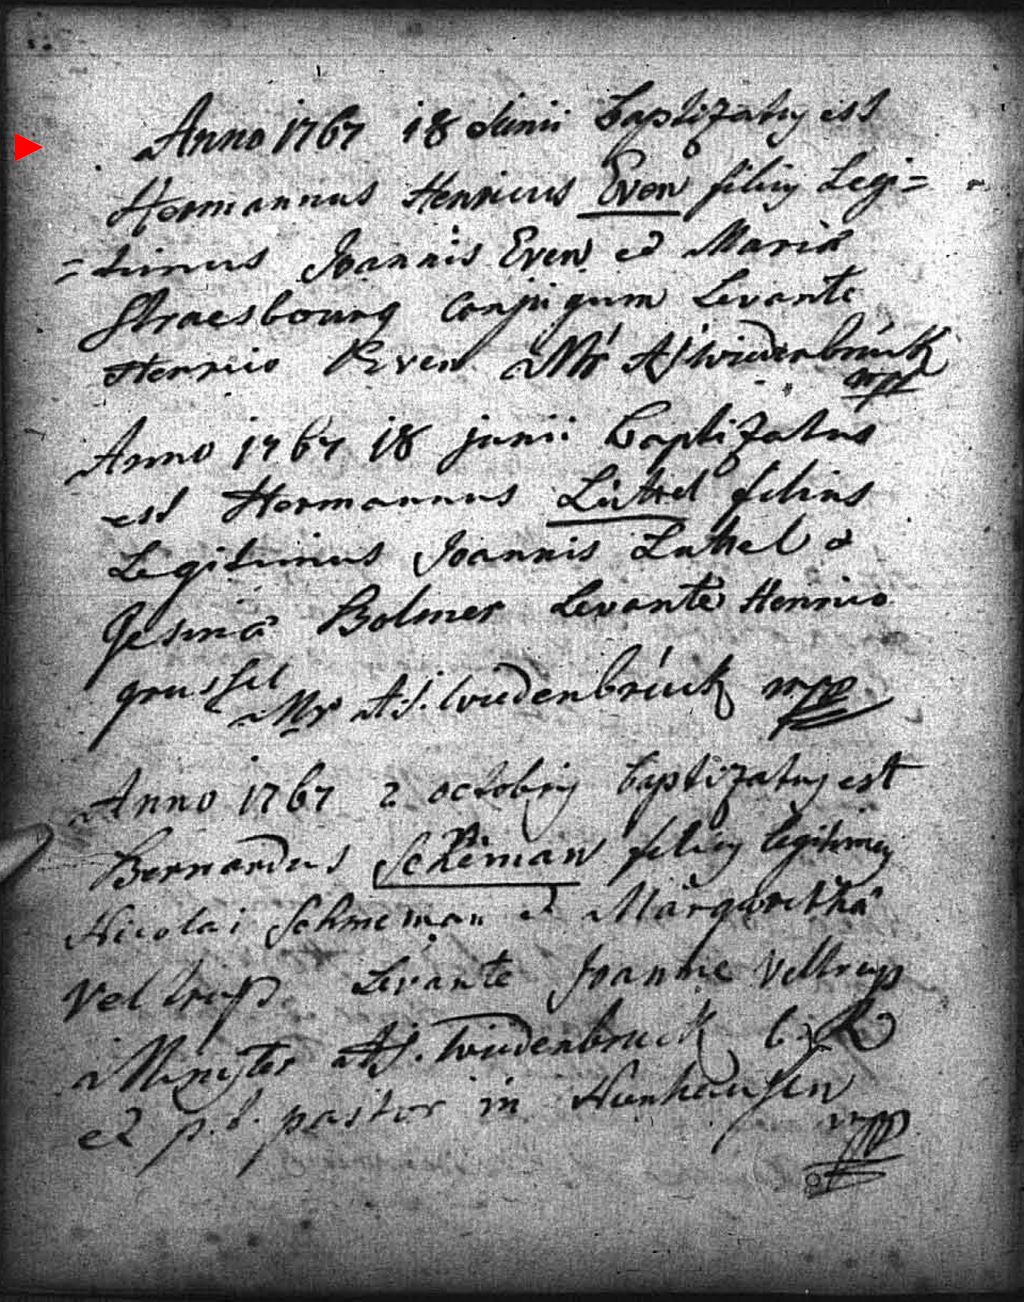 Anno 1767 18 Junii baptizatus est
Hermannus Henricus Even filius Legi=
=timus Joannis Even et Maria
Straesbourg conjugum Levante
Henrico Even Mr AJ Wiedenbrück
mpp
Anno 1767 18 junii baptizatus
est Hermannus Lükel filius
Legitimus Joannis Lukel et
Gesina Bolmer Levante Henrico
grussel Mr A.J. Wiedenbrück mpp
Anno 1767 2 octobris baptizatus est
Bernardus Schneman filius legitimus
Nicolai Schneman et Margaretha
Veltrup Levante Joanne Veltrup
Minister A.J. Wiedenbruck
et p.t. pastor in Hunhausen
mpp